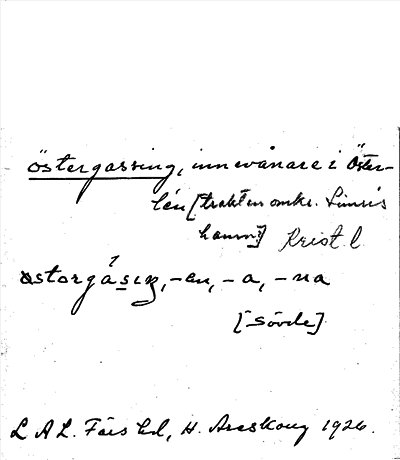 östergassing, innevånare i Öster-
lén [trakten omkr. Simris
hamn] Krist l
östorgásing, -en, -a, -na
[Sövde]
L A L. Färs hd, H. Areskoug 1926.